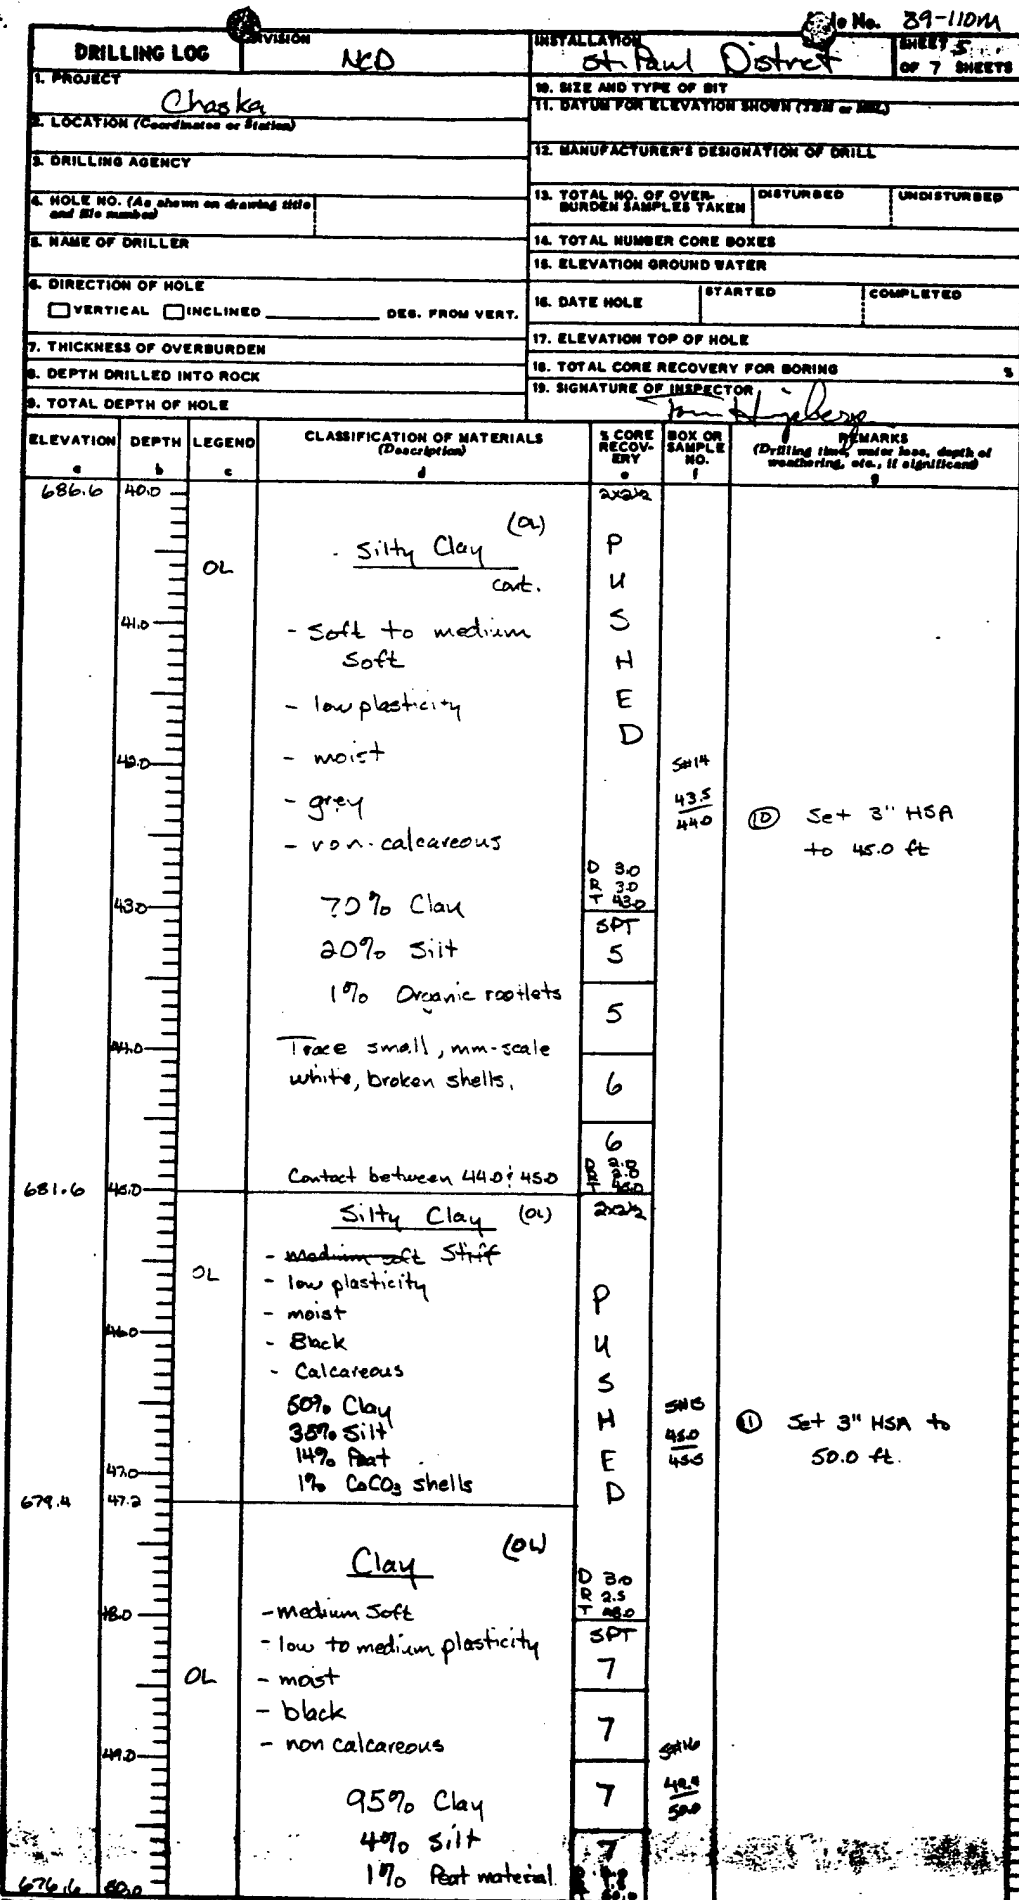 Hole No. 89-110M
DRILLING LOG
DIVISION
NCD
INSTALLATION
St. Paul District
SHEET 5
OF 7 SHEETS
1. PROJECT
Chaska
2. LOCATION (Coordinates or Station)
3. DRILLING AGENCY
4. HOLE NO. (As shown on drawing title
and file number)
5. NAME OF DRILLER
6. DIRECTION OF HOLE
VERTICAL INCLINED DEG. FROM VERT.
7. THICKNESS OF OVERBURDEN
8. DEPTH DRILLED INTO ROCK
9. TOTAL DEPTH OF HOLE
10. SIZE AND TYPE OF BIT
11. DATUM FOR ELEVATION SHOWN (TBM or MSL)
12. MANUFACTURER'S DESIGNATION OF DRILL
13. TOTAL NO. OF OVER-
BURDEN SAMPLES TAKEN
DISTURBED
UNDISTURBED
14. TOTAL NUMBER CORE BOXES
15. ELEVATION GROUND WATER
16. DATE HOLE
STARTED
COMPLETED
17. ELEVATION TOP OF HOLE
18. TOTAL CORE RECOVERY FOR BORING %
19. SIGNATURE OF INSPECTOR
ELEVATION
a
DEPTH
b
LEGEND
c
CLASSIFICATION OF MATERIALS
(Description)
d
% CORE
RECOV-
ERY
e
BOX OR
SAMPLE
NO.
f
REMARKS
(Drilling time, water loss, depth of
weathering, etc., if significant)
g
686.6 40.0 2x2½
(OL)
Silty Clay
cont.
OL
P
U
S
H
E
D
41.0
- Soft to medium
Soft
- low plasticity
42.0
- moist
- grey
- non-calcareous
S#14
43.5
44.0
10 Set 3" HSA
to 45.0 ft
D 3.0
R 3.0
T 43.0
43.0
70% Clay
20% Silt
1% Organic rootlets
SPT
5
5
6
6
44.0
Trace small, mm-scale
white, broken shells.
Contact between 44.0 & 45.0
D 2.0
R 2.0
T 45.0
681.6 45.0 2x2½
Silty Clay (OL)
- medium soft Stiff
- low plasticity
- moist
- Black
- Calcareous
OL
46.0
50% Clay
35% Silt
14% Peat
1% CaCO3 shells
P
U
S
H
E
D
S#15
45.0
45.5
11 Set 3" HSA to
50.0 ft.
47.0
679.4 47.2
(OL)
Clay
D 3.0
R 2.5
T 48.0
48.0
- medium Soft
- low to medium plasticity
- moist
- black
- non calcareous
OL
SPT
7
7
7
7
49.0
S#16
49.4
50.0
95% Clay
4% Silt
1% Peat material
676.6 50.0